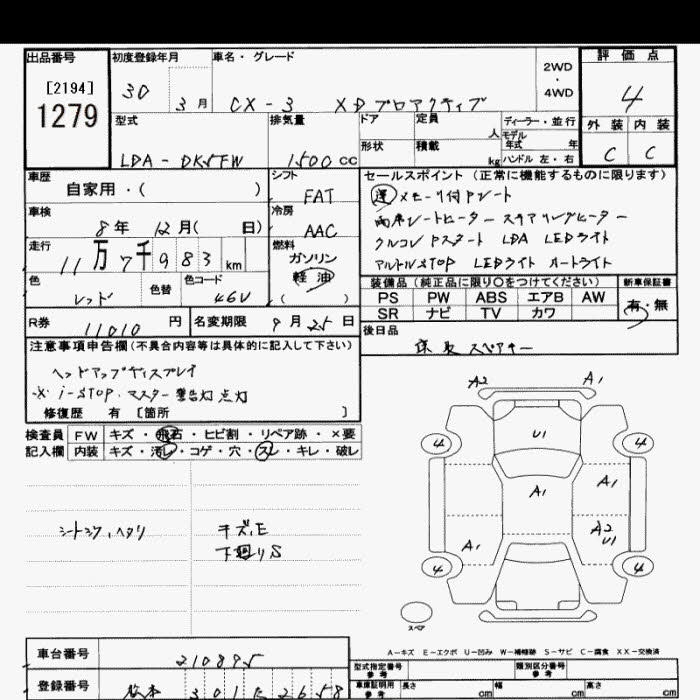 出品番号
[2194]
1279
初度登録年月
30 3月
車名・グレード
CX-3 XDプロアクティブ
2WD
・
4WD
評価点
4
外装 内装
C C
型式
LDA-DK5FW
排気量
1500 cc
ドア
定員
人
形状
積載
kg
ディーラー・並行
モデル年式 年
ハンドル 左・右
車歴
自家用・( )
シフト
FAT
車検
8年 12月( 日)
冷房
AAC
走行
11万7千983 km
燃料
ガソリン
軽油
( )
色
レッド
色替
色コード
46V
セールスポイント(正常に機能するものに限ります)
運メモリー付Pシート
両席シートヒーター ステアリングヒーター
クルコン Pスタート LDA LEDライト
アイドルSTOP LEDライト オートライト
装備品(純正品に限り○をつけてください)
PS PW ABS エアB AW
SR ナビ TV カワ
新車保証書
有・無
R券
11010 円
名変期限
9月25日
後日品
保取スペアキー
注意事項申告欄(不具合内容等は具体的に記入して下さい)
ヘッドアップディスプレイ
・X i-STOP、マスター警告灯点灯
修復歴 有 [箇所 ]
検査員
記入欄
FW キズ・飛石・ヒビ割・リペア跡・×要
内装 キズ・汚レ・コゲ・穴・スレ・キレ・破レ
シートコゲ、ヘタリ
キズ、E
下廻りS
A2 A1
U1
4 4
A1
A1
A2
U1
A1
4 4
スペア
A-キズ E-エクボ U-凹み W-補修跡 S-サビ C-腐食 XX-交換済
車台番号
210895
登録番号
松本 301 た 2658
型式指定番号
参考
類別区分番号
参考
車庫証明用
参考
長さ cm
幅 cm
高さ cm